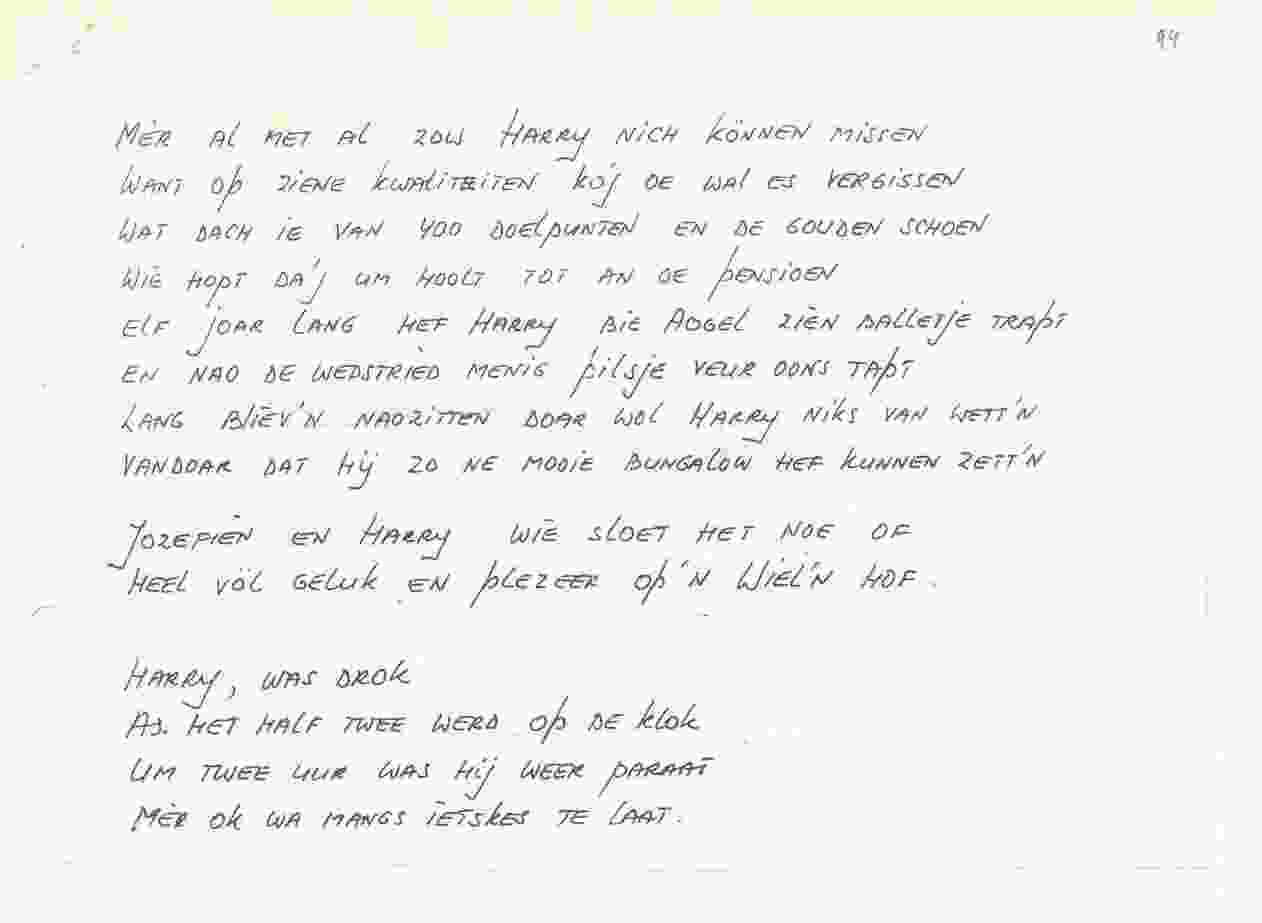 94
Mèr al met al zow Harry nich können missen
Want op ziene kwaliteiten ko'j oe wal es vergissen
Wat dach ie van 400 doelpunten en de gouden schoen
Wie hopt da'j um hoolt tot an oe pensioen
Elf joar lang hef Harry bie Aogel zien balletje trapt
En nao de wedstried menig pilsje veur oons tapt
Lang bliev'n naozitten doar wol Harry niks van wett'n
Vandoar dat hij zo ne mooie bungalow hef kunnen zett'n
Jozefien en Harry wie sloet het noe of
Heel völ geluk en plezeer op 'n Wiel'n hof.
Harry, was drok
As. het half twee werd op de klok
Um twee uur was hij weer paraat
Mèr ok wa mangs ietskes te laat.